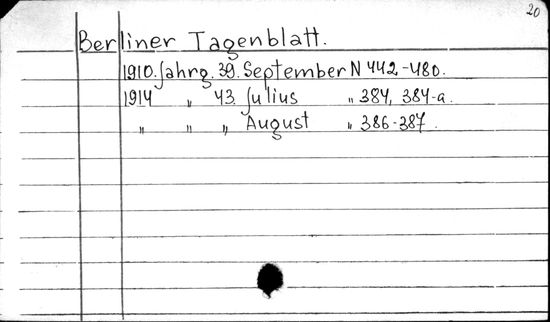 20
Berliner Tagenblatt.
1910. Jahrg. 39. September N 442-480.
1914 „ 43. Julius „ 384, 384-a.
„ „ „ August „ 386-387.